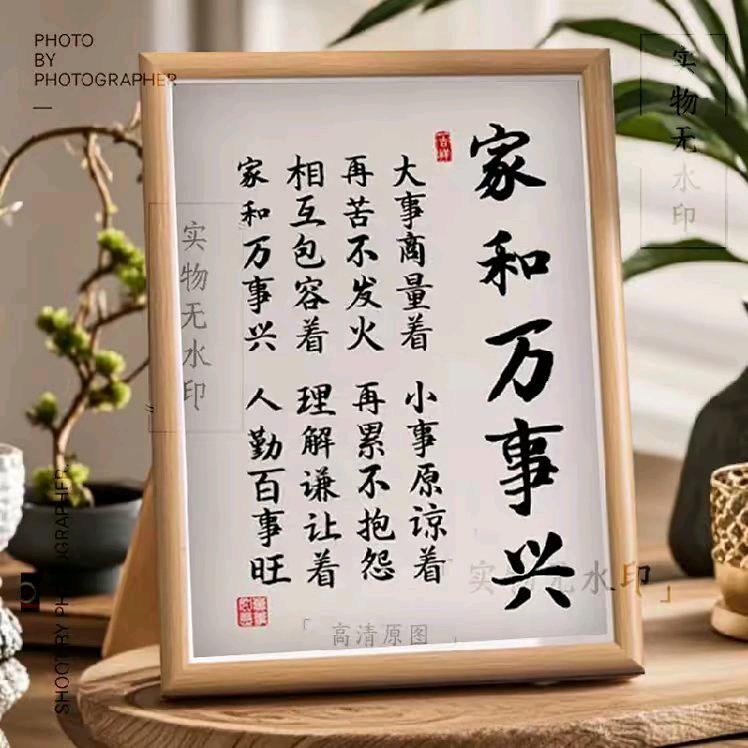 PHOTO
BY
PHOTOGRAPHER
家和万事兴
吉祥
大事商量着 小事原谅着
再苦不发火 再累不抱怨
相互包容着 理解谦让着
家和万事兴 人勤百事旺
实物无水印
实物无水印
实物无水印
「高清原图」
SHOOT BY PHOTOGRAPHER